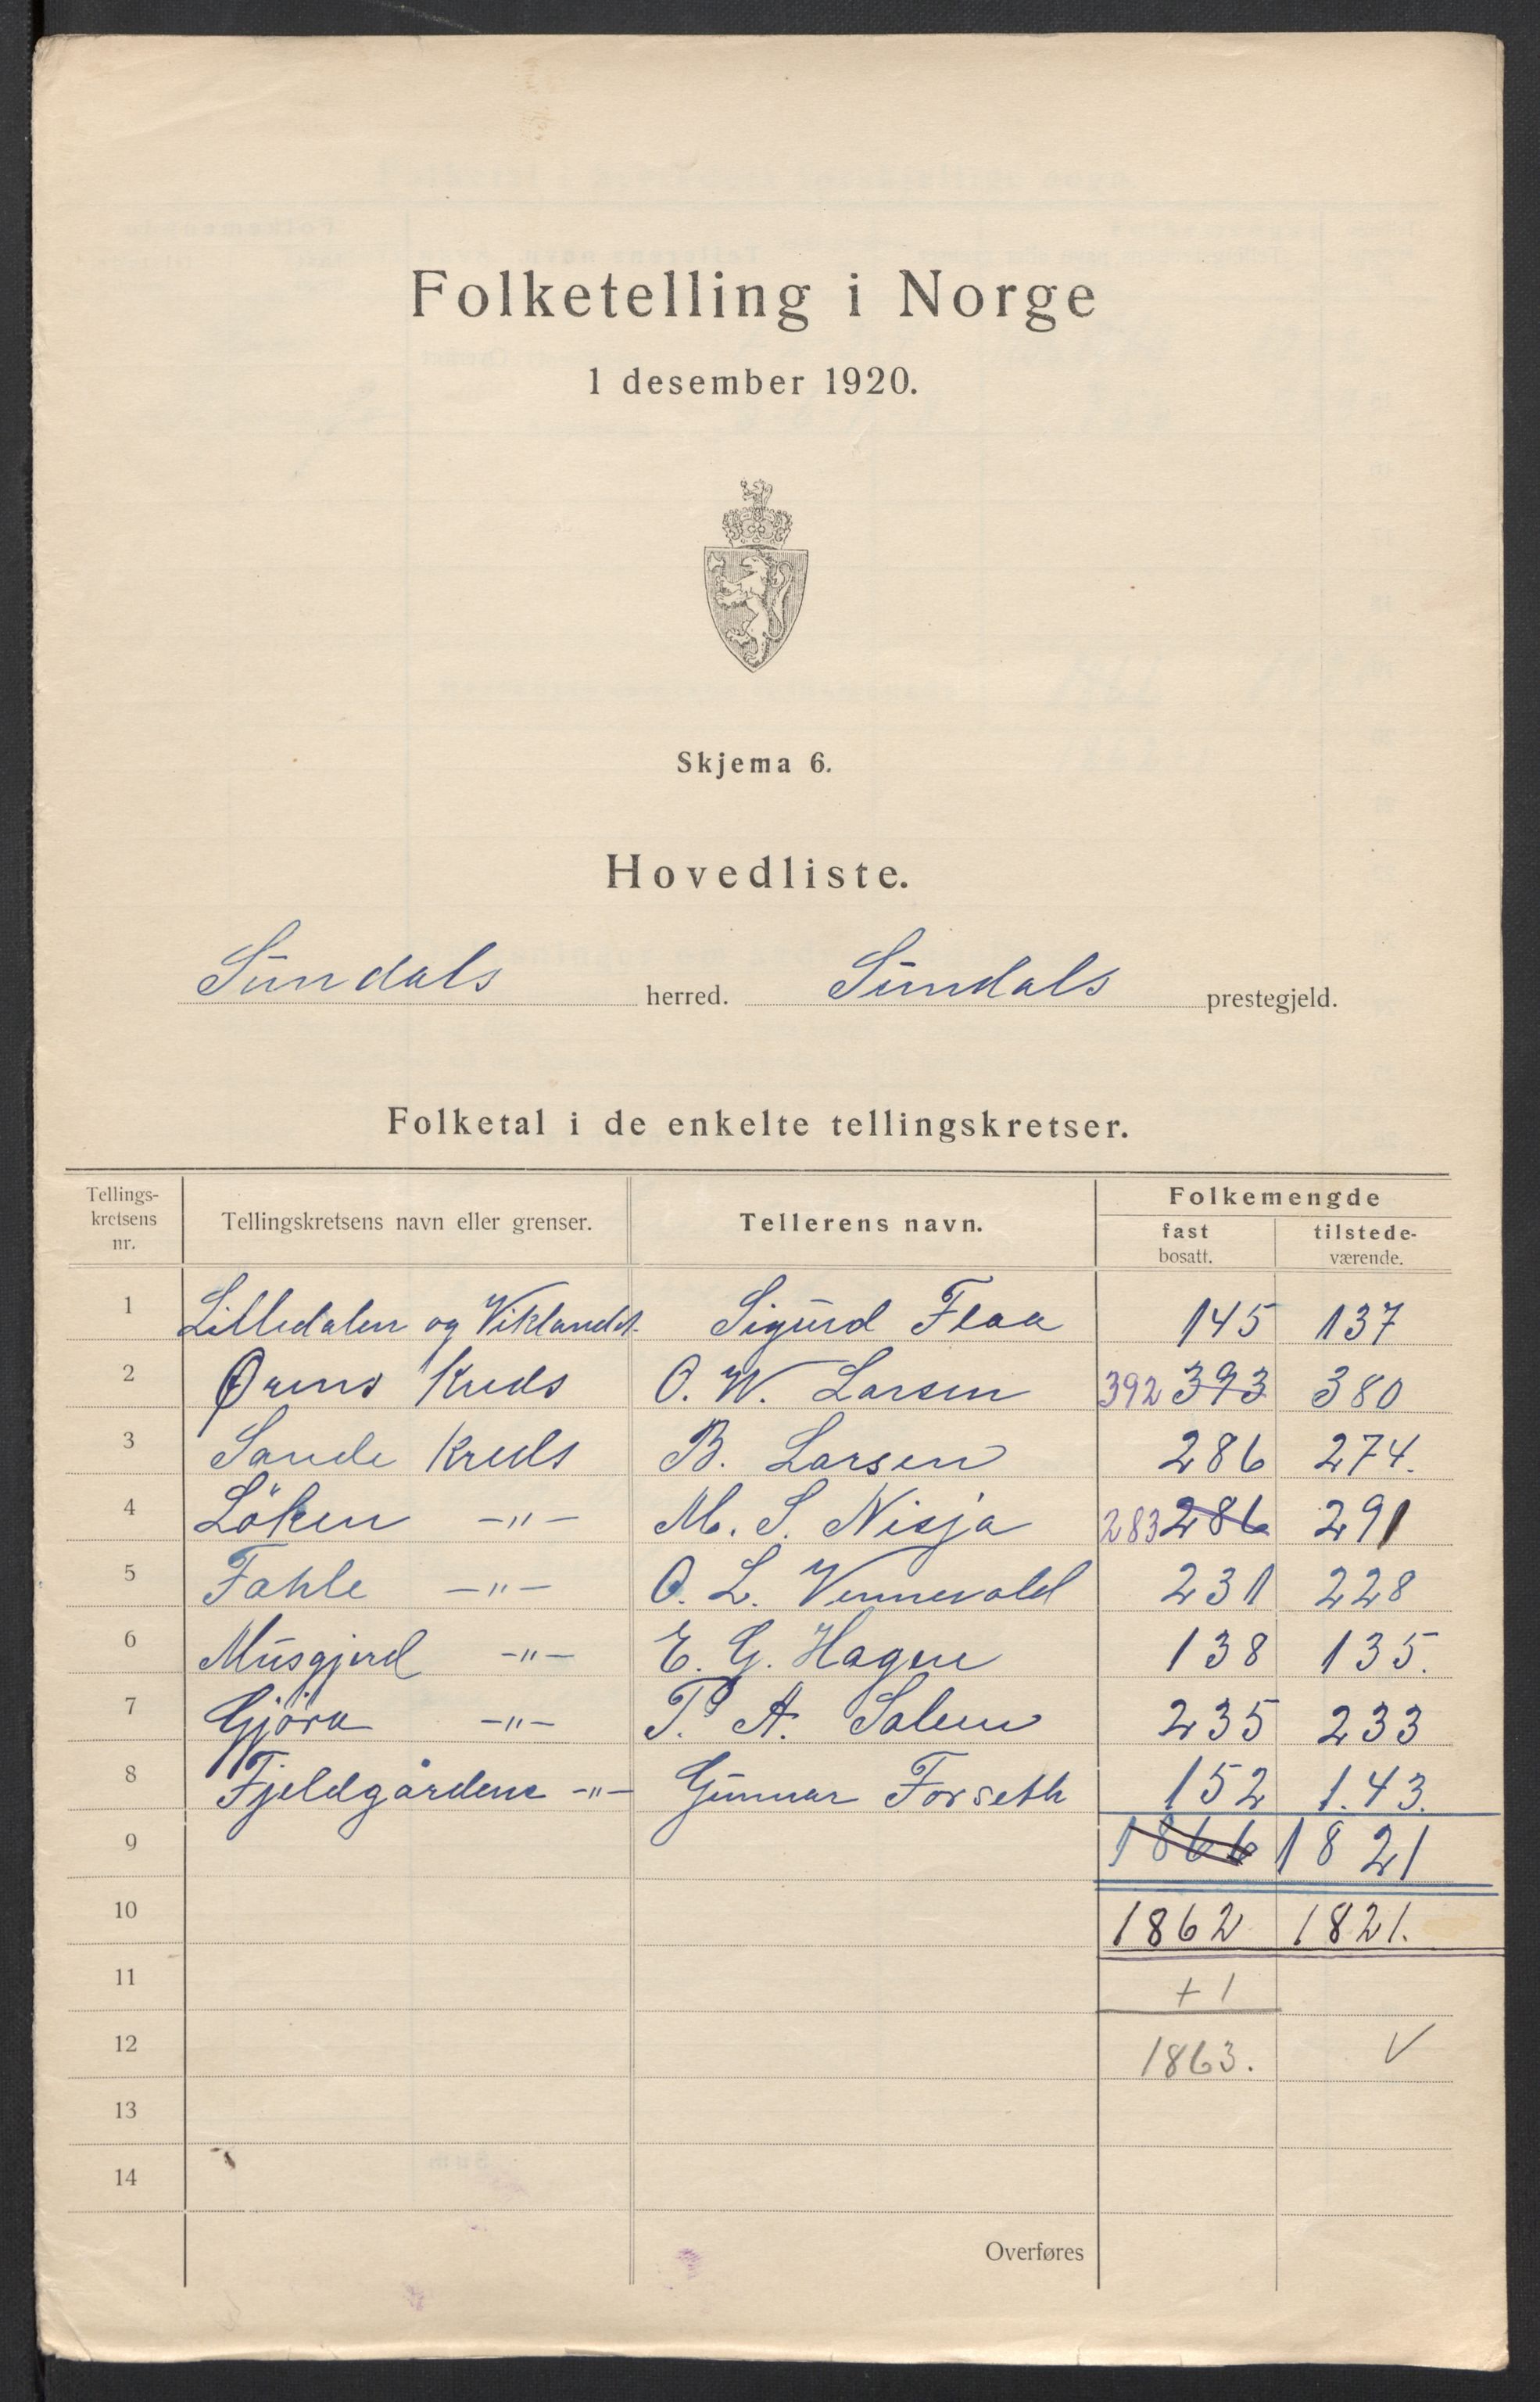 Folketelling i Norge
1 desember 1920.
Skjema 6.
Hovedliste.
Sundals herred. Sundals prestegjeld.
Folketal i de enkelte tellingskretser.
Tellings-kretsens nr. Tellingskretsens navn eller grenser. Tellerens navn. Folkemengde
fast bosatt. tilstede-værende.
1 Lilledalen og Viklandet Sigurd Flaa 145 137
2 Ørens Kreds O. W. Larsen 392 393 380
3 Sande Kreds B. Larsen 286 274.
4 Löken -"- M. S. Nisja 283 286 291
5 Fahle -"- O. L. Vennevold 231 228
6 Musgjerd -"- E. G. Hagen 138 135.
7 Gjöra -"- P. A. Salen 235 233
8 Fjeldgårdene -"- Gunnar Forseth 152 1.43.
9 1866 1821
10 1862 1821.
11 + 1
12 1863. ✓
13
14
Overføres